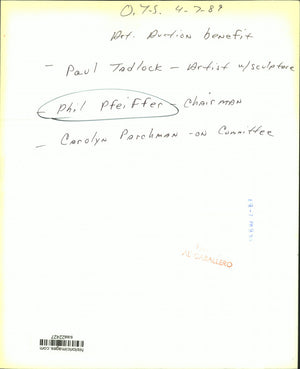 O.T.S. 4-7-89
Art. Auction benefit
- Paul Tadlock - Artist w/sculpture
- Phil Pfeiffer - Chairman
- Carolyn Parchman - on Committee
AL CABALLERO
Historicimages.com